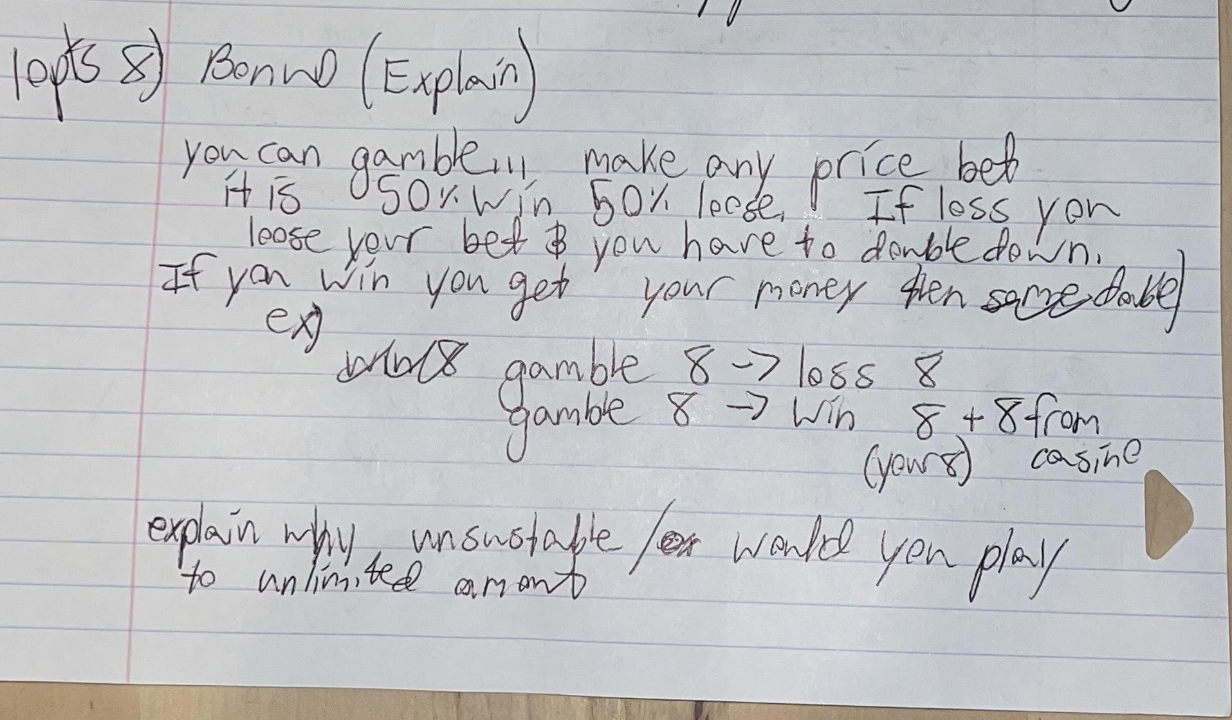 10pts 8) Bonus (Explain)
you can gamble... make any price bet
it is 50% win 50% loose. If loss you
loose your bet & you have to double down.
If you win you get your money then double)
ex)
gamble 8 -> loss 8
gamble 8 -> win 8 + 8 from
(your 8) casino
explain why unsustable / would you play
to unlimited amont